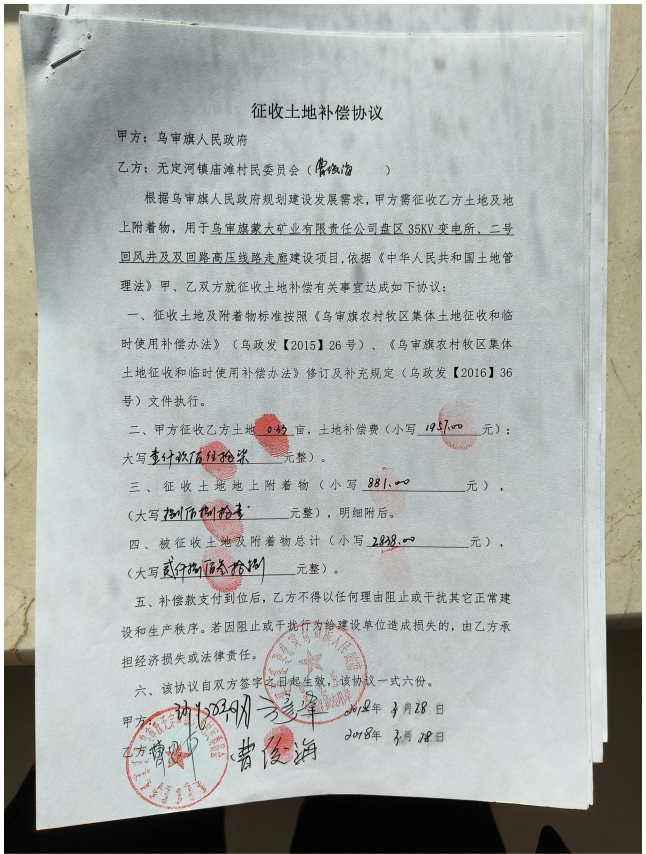 征收土地补偿协议
甲方：乌审旗人民政府
乙方：无定河镇庙滩村民委员会（曹俊海 ）
根据乌审旗人民政府规划建设发展需求，甲方需征收乙方土地及地
上附着物，用于乌审旗蒙大矿业有限责任公司盘区 35KV 变电所、二号
回风井及双回路高压线路走廊建设项目,依据《中华人民共和国土地管
理法》甲、乙双方就征收土地补偿有关事宜达成如下协议：
一、征收土地及附着物标准按照《乌审旗农村牧区集体土地征收和临
时使用补偿办法》（乌政发【2015】26 号）、《乌审旗农村牧区集体
土地征收和临时使用补偿办法》修订及补充规定（乌政发【2016】36
号）文件执行。
二、甲方征收乙方土地 亩，土地补偿费（小写 1957.00 元）；
大写壹仟玖佰伍拾柒 元整）。
三、征收土地地上附着物（小写 881.00 元），
（大写捌佰捌拾壹 元整），明细附后。
四、被征收土地及附着物总计（小写 2838.00 元），
（大写贰仟捌佰叁拾捌 元整）。
五、补偿款支付到位后，乙方不得以任何理由阻止或干扰其它正常建
设和生产秩序。若因阻止或干扰行为给建设单位造成损失的，由乙方承
担经济损失或法律责任。
六、该协议自双方签字之日起生效，该协议一式六份。
甲方： 2018年 3月28日
乙方： 曹俊海 2018年 3月28日